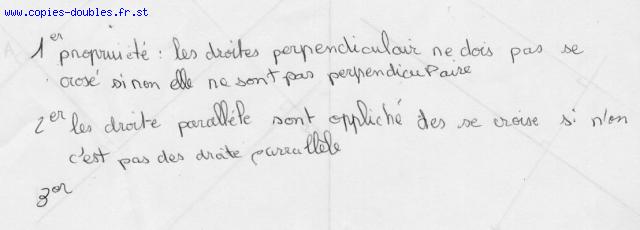 www.copies-doubles.fr.st
1er propriété : les droites perpendiculair ne dois pas se
crosé si non elle ne sont pas perpendiculaire
2er les droite parallèle sont oppliché des se croise si n'on
c'est pas des droite parrallèle
3er